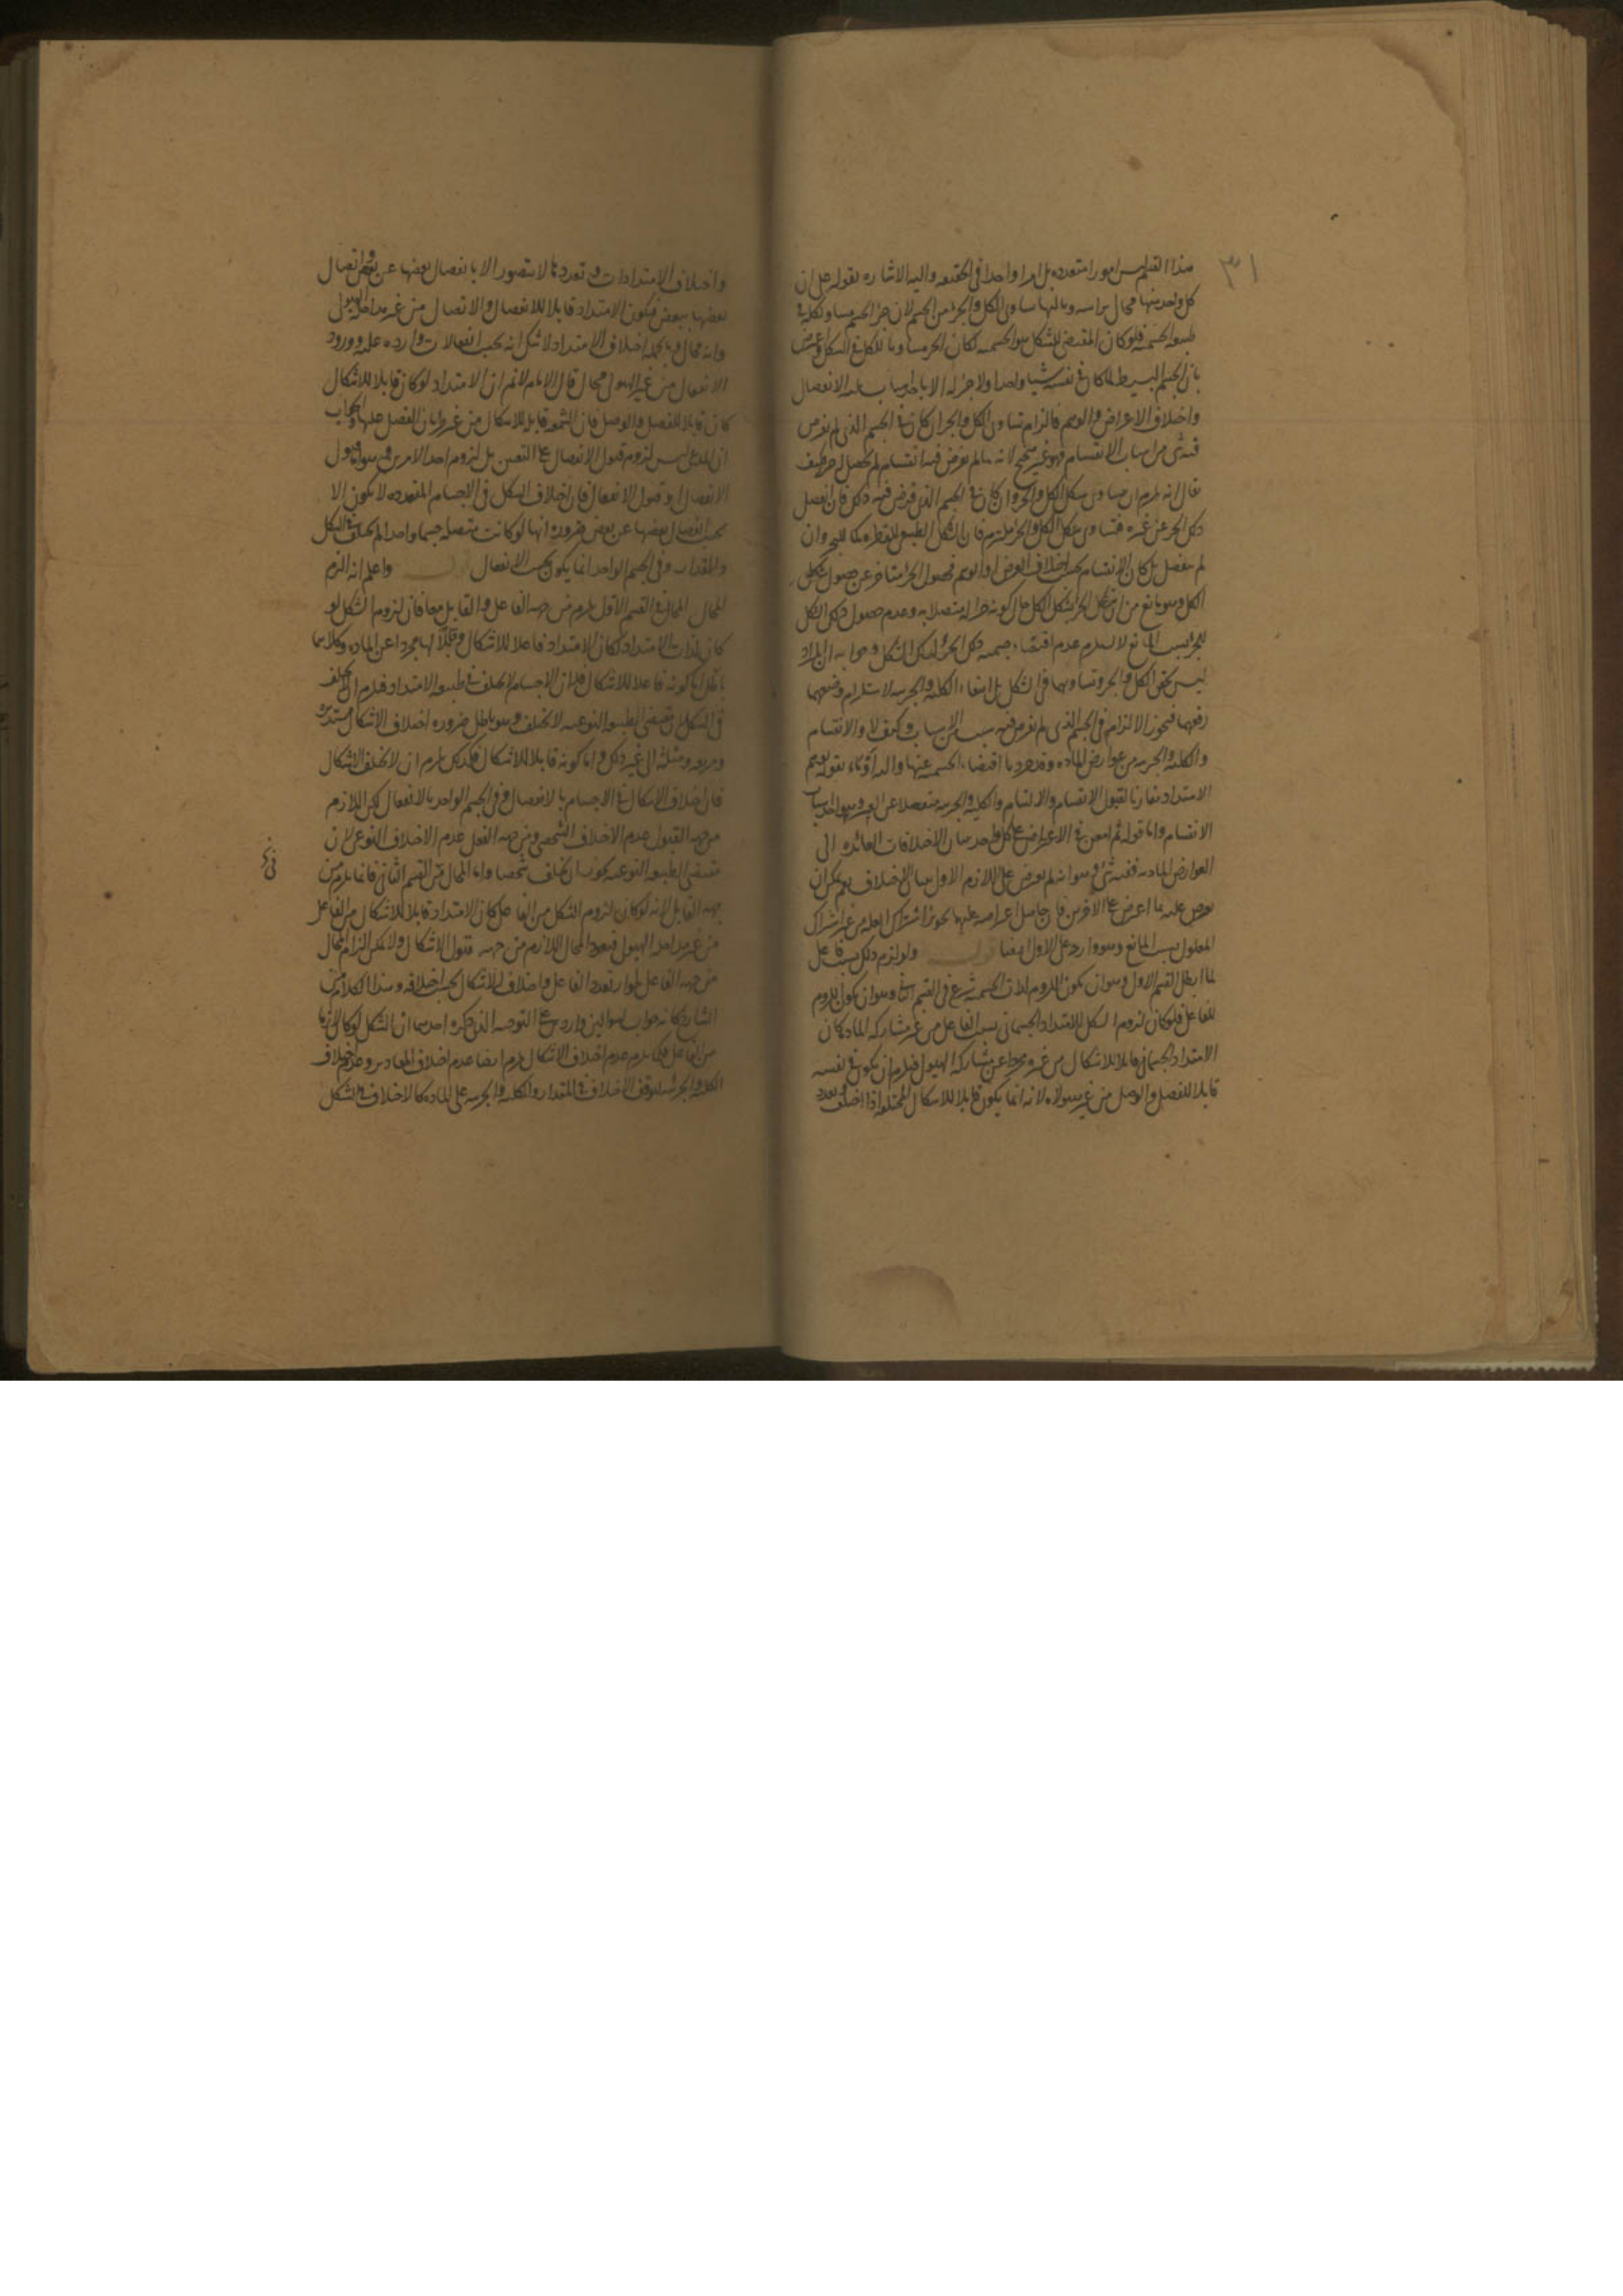 ٣١
هذا القسم ليس امورا متعددة بل امرا واحدا في الحقيقة واليه الاشارة بقوله على ان
كل واحد منها محال براسه وثالثها تساوى الكل والجزء من الجسم لان جزء الجسم مساو لكله في
طبيعة الجسمية فلو كان المقتضى للشكل هو الجسمية لكان الجزء مساويا للكل في الشكل واعترض
بان الجسم البسيط لما كان في نفسه شيئا واحدا ولا جزء له الا باحد اسباب ثلثة الانفصال
واختلاف الاعراض والوهم فالزام تساوى الكل والجزء ان كان في الجسم الذى لم يفرض
فيه شى من اسباب الانقسام فهو غير صحيح لانه ما لم يعرض فيه انقسام لم يحصل له جزء فكيف
يقال انه يلزم ان يتساوى شكل الكل والجزء وان كان في الجسم الذى فرض فيه ذلك فان انفصل
ذلك الجزء عن غيره فتساوى شكل الكل والجزء ملتزم فان الشكل الطبيعى للقطرة كما للبحر وان
لم ينفصل بل كان الانقسام بحسب اختلاف العرض او الوهم فحصول الجزء متأخر عن حصول شكل
الكل وهو مانع من ان يتشكل الجزء بشكل الكل حال كونه جزءا له متصلا به وعدم حصول ذلك الشكل
للجزء بسبب المانع لا يستلزم عدم اقتضاء جسمية ذلك الجزء لذلك الشكل وجوابه ان المراد
ليس تحقق الكل والجزء وتساويهما في الشكل بل انتفاء الكلية والجزئية لاستلزام وضعهما
رفعهما فيجوز الالزام في الجسم الذى لم يفرض فيه سبب من الاسباب وكيف لا والانقسام
والكلية والجزئية من عوارض المادة وقد جرد ما اقتضاء الجسمية عنها والى هذا
الامتداد مقارنا لقبول الانقسام والالتيام والكلية والجزئية
الانقسام واما قوله ثم امعن في الاعتراض على كل واحد ببيان الاختلافات العائدة الى
العوارض المادية ففيه شى وهو انه لم يعرض على اللازم الاول ببيان الاختلاف نعم يمكن ان
يعرض عليه بما اعترض على الاخرين فان حاصل اعتراضه عليهما تجويز اشتراك العلة من غير اشتراك
المعلول بسبب المانع وهو وارد على الاول ايضا قوله ولو لزم ذلك بسبب فاعل
لما ابطل القسم الاول وهو ان يكون اللزوم لذات الجسمية شرع في القسم الثانى وهو ان يكون اللزوم
للفاعل فلو كان لزوم الشكل للامتداد الجسمانى بسبب الفاعل من غير مشاركة المادة كان
الامتداد الجسمانى قابلا للاشكال من غير مشاركة الهيولى فيلزم ان يكون في نفسه
قابلا للفصل والوصل من غير هيولاه لانه انما يكون قابلا للاشكال المختلفة اذا اختلف وتعدد
واختلاف الامتدادات وتعددها لا يتصور الا بانفصال بعضها عن بعض واتصال
بعضها ببعض فيكون الامتداد قابلا للانفصال والاتصال من غير مداخلة الهيولى
وانه محال وبالجملة اختلاف الامتداد لا شك انه بحسب انفعالات واردة عليه وورود
الانفعال من غير الهيولى محال قال الامام لا نم ان الامتداد لو كان قابلا للاشكال
كان قابلا للفصل والوصل فان الشمعة قابلة للاشكال من غير طريان الفصل عليها والجواب
ان المدعى ليس لزوم قبول الانفصال على التعيين بل لزوم احد الامرين وهو اما قبول
الانفصال او قبول الانفعال فان اختلاف الشكل في الاجسام المتعددة لا يكون الا
بحسب انفصال بعضها عن بعض ضرورة انها لو كانت متصلة جسما واحدا لم يختلف في الشكل
والمقدار وفي الجسم الواحد انما يكون بحسب الانفعال واعلم انه الزم
المحال في القسم الاول يلزم من جهة الفاعل والقابل معا فان لزوم الشكل لو
كان لذات الامتداد لكان الامتداد فاعلا للاشكال وقابلا لها مجردا عن المادة وكلاهما
باطل اما كونه فاعلا للاشكال فلان الاجسام لا تختلف في طبيعة الامتداد فيلزم ان لا تختلف
في الشكل لان مقتضى الطبيعة النوعية لا تختلف وهو باطل ضرورة اختلاف الاشكال مستديرة
ومربعة ومثلثة الى غير ذلك واما كونه قابلا للاشكال فلذلك يلزم ان لا تختلف الاشكال
فان اختلاف الاشكال في الاجسام بالانفصال وفي الجسم الواحد بالانفعال لكن اللازم
من جهة القبول عدم الاختلاف الشخصى ومن جهة الفعل عدم الاختلاف النوعى لان
مقتضى الطبيعة النوعية يجوز ان يختلف شخصا واما المحال من القسم الثانى فانما يلزم من
جهة القابل لانه لو كان لزوم الشكل من الفاعل كان الامتداد قابلا للاشكال من الفاعل
من غير مداخلة الهيولى فيعود المحال اللازم من جهة قبول الاشكال ولا يمكن الزام المحال
من جهة الفاعل لجواز تعدد الفاعل واختلاف الاشكال بحسب اختلافه وهذا الكلام من
الشارح كانه جواب لسؤالين واردين على التوجيه الذى ذكره احدهما ان الشكل لو كان لازما
من الفاعل فكما يلزم عدم اختلاف الاشكال يلزم ايضا عدم اختلاف المقادير وعدم اختلاف
الكلية والجزئية لتوقف الاختلاف في المقدار والكلية والجزئية على المادة كالاختلاف في الشكل